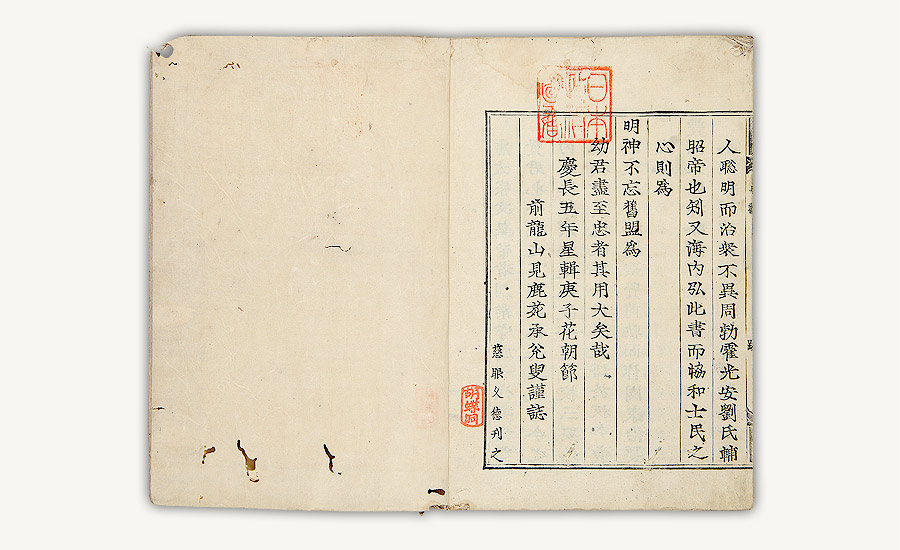 人聡明而治衆不異周勃霍光安劉氏輔
昭帝也矧又海内弘此書而恊和士民之
心則為
明神不忘舊盟為
幼君盡至忠者其用大矣哉
慶長五年星輯庚子花朝節
前龍山見鹿苑承兌叟謹誌
慈眼久德刊之
日本
胡蝶洞